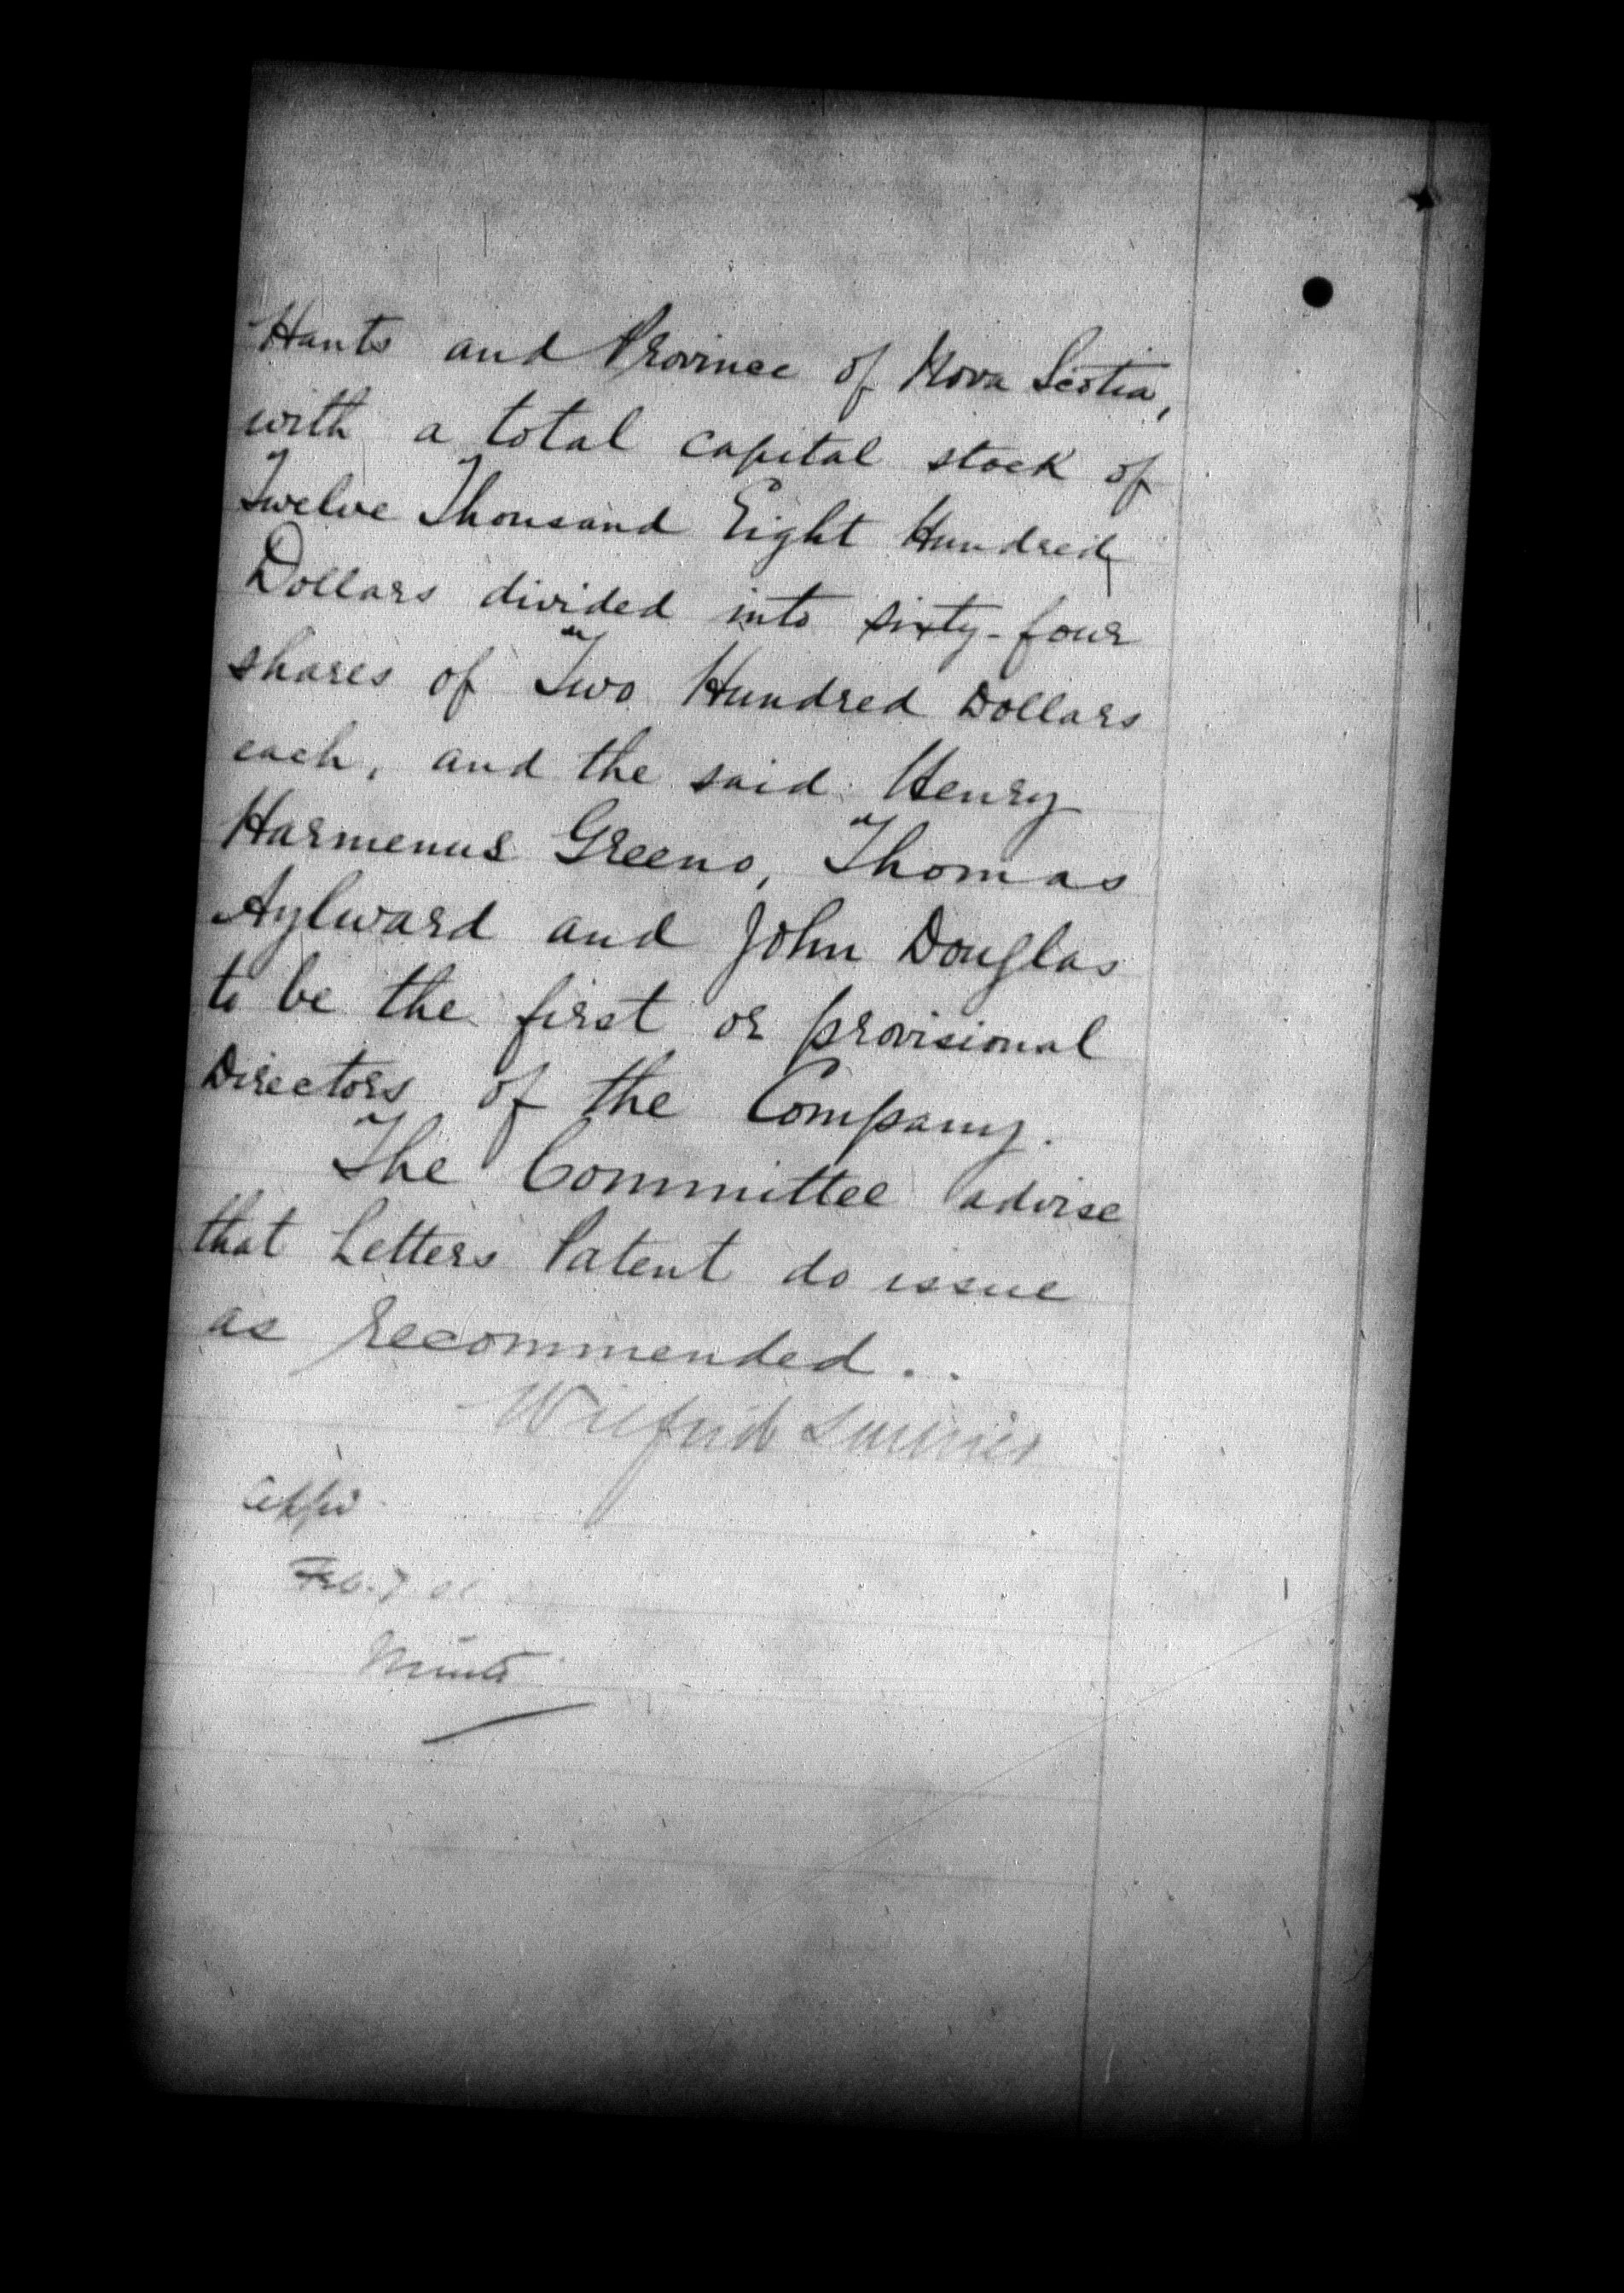 Hants and Province of Nova Scotia,
with a total capital stock of
Twelve Thousand Eight Hundred
Dollars divided into sixty-four
shares of Two Hundred Dollars
each, and the said Henry
Harmenus Greeno, Thomas
Aylward and John Douglas
to be the first or provisional
Directors of the Company.
The Committee advise
that Letters Patent do issue
as recommended..
Wilfrid Laurier
Feb. 7
Minto